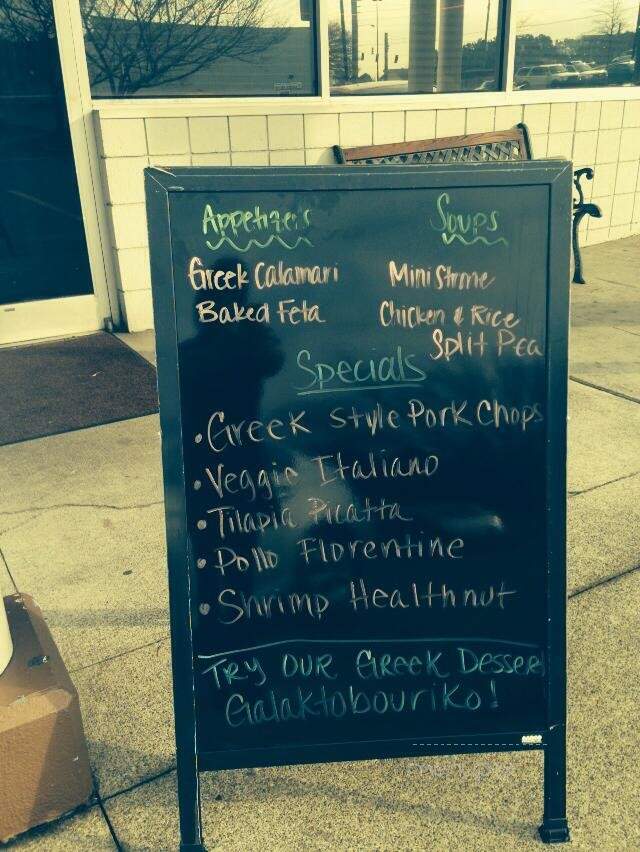 Appetizers
Soups
Greek Calamari
Ministrone
Baked Feta
Chicken & Rice
Split Pea
Specials
• Greek Style Pork Chops
• Veggie Italiano
• Tilapia Picatta
• Pollo Florentine
• Shrimp Healthnut
Try our Greek Dessert
Galaktobouriko!